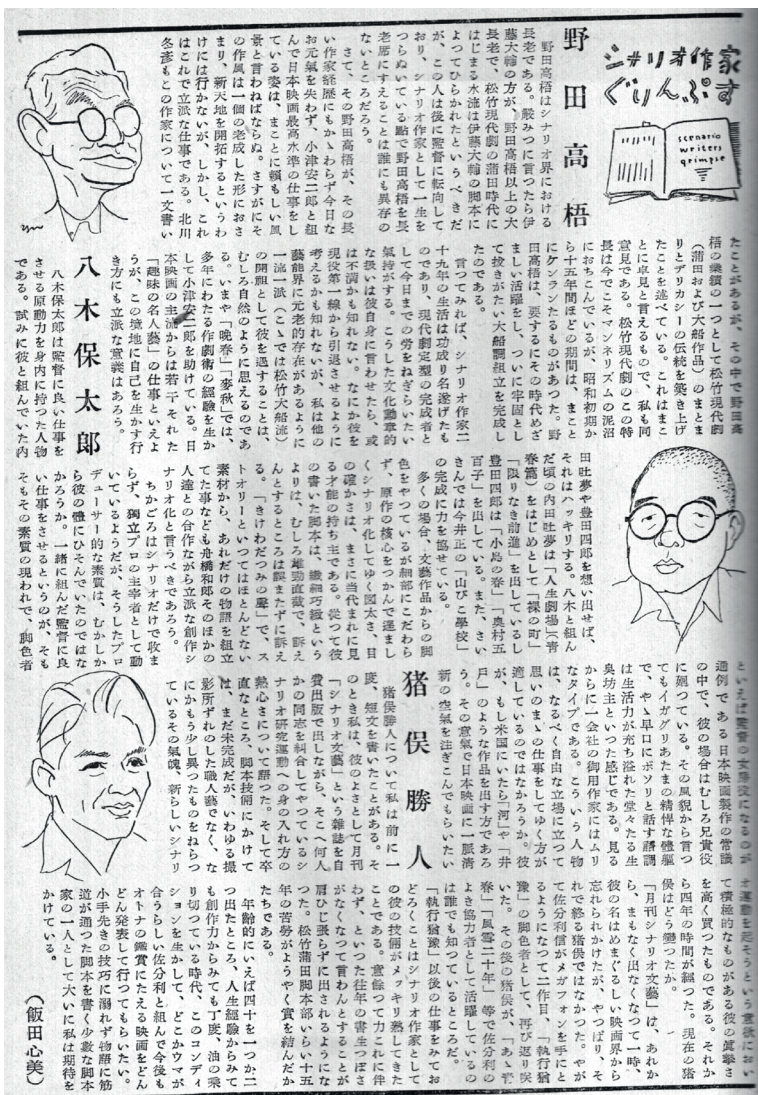 シナリオ作家
ぐりんぷす
scenario
writers
qrimpse
野田高梧
野田高梧はシナリオ界における
長老である。嚴みつに言つたら伊
藤大輔の方が、野田高梧以上の大
長老で、松竹現代劇の蒲田時代に
はじまる水流は伊藤大輔の脚本に
よつてひらかれたというべきだ
が、この人は後に監督に轉向して
おり、シナリオ作家として一生を
つらぬいている點で野田高梧を長
老席にすえることは誰にも異存の
ないところだろう。
さて、その野田高梧が、その長
い作家経歴にもかゝわらず今日な
お元氣を失わず、小津安二郎と組
んで日本映画最高水準の仕事をし
ている姿は、まことに頼もしい風
景と言わねばならぬ。さすがにそ
の作風は一個の老成した形におさ
まり、新天地を開拓するというわ
けには行かないが、しかし、これ
はこれで立派な仕事である。北川
冬彦もこの作家について一文書い
たことがあるが、その中で野田高
梧の業績の一つとして松竹現代劇
(蒲田および大船作品)のまとま
りとデリカシーの伝統を築き上げ
たことを述べている。これはまこ
とに卓見と言えるもので、私も同
意見である。松竹現代劇のこの特
長は今でこそマンネリズムの泥沼
におちこんでいるが、昭和初期か
ら十五年間ほどの期間は、まこと
にケンランたるものがあつた。野
田高梧は、要するにその時代めざ
ましい活躍をし、ついに牢固とし
て抜きがたい大船調組立を完成し
たのである。
言つてみれば、シナリオ作家二
十九年の生活は功成り名遂げたも
のであり、現代劇定型の完成者と
して今日までの労をねぎらいたい
氣持がする。こうした文化勳章的
な扱いは彼自身に言わせたら、或
は不満かも知れない。なにか彼を
現役第一線から引退させるように
考えるかも知れないが、私は他の
藝能界に元老的存在があるように
一流一派(こゝでは松竹大船流)
の開祖として彼を遇することは、
むしろ自然のように思えるのであ
る。いまや「晩春」「麥秋」では、
多年にわたる作劇術の經驗を生か
して小津安二郎を助けている。日
本映画の主流からは若干それた
「趣味の名人藝」の仕事といえよ
うが、この境地に自己を生かす行
き方にも立派な意義はあろう。
八木保太郎
八木保太郎は監督に良い仕事を
させる原動力を身内に持つた人物
である。試みに彼と組んでいた内
田吐夢や豊田四郎を想い出せば、
それはハッキリする。八木と組ん
だ頃の内田吐夢は「人生劇場(青
春篇)をはじめとして「裸の町」
「限りなき前進」を出しているし
豊田四郎は「小島の春」「奥村五
百子」を出している。また、さい
きんでは今井正の「山びこ學校」
の完成に力を協せている。
多くの場合、文藝作品からの脚
色をやつているが細部にこだわら
ず、原作の核心をつかんで逞まし
くシナリオ化してゆく図太さ、目
の確かさは、まさに当代まれに見
る才能の持ち主である。從つて彼
の書いた脚本は、繊細巧緻という
よりは、むしろ雄勁直截で、訴え
んとするところは誤またずに訴え
る。「きけわだつみの聲」で、ス
トオリーといつてはほとんどない
素材から、あれだけの物語を組立
てた事なども舟橋和郎そのほかの
人達との合作ながら立派な創作シ
ナリオ化と言うべきであろう。
ちかごろはシナリオだけで收ま
らず、獨立プロの主宰者として動
いているようだが、そうしたプロ
デューサー的な素質は、むかしか
ら彼の體にひそんでいたのではな
かろうか。一緒に組んだ監督に良
い仕事をさせるというのが、そも
そもその素質の現われで、脚色者
といえば監督の女房役になるのが
通例である日本映画製作の常識
の中で、彼の場合はむしろ兄貴役
に廻つている。その風貌から言つ
てもイガグリあたまの精悍な體軀
で、やゝ早口にボソリと話す語調
は生活力が充ち溢れた堂々たる生
臭坊主といつた感じである。見る
からに一会社の御用作家にはムリ
なタイプである。こういう人物
は、なるべく自由な立場に立つて
思いのまゝの仕事をしてゆく方が
適しているのではなかろうか。彼
が、もし米国にいたら「河」や「井
戸」のような作品を出す方であろ
う。その意氣で日本映画に一脈清
新の空氣を注ぎこんでもらいたい
猪俣勝人
猪俣勝人について私は前に一
度、短文を書いたことがある。そ
のとき私は、彼のよさとして月刊
「シナリオ文藝」という雜誌を自
費出版で出しながら、そこへ何人
かの同志を糾合してやつているシ
ナリオ研究運動への身の入れ方の
熱心さについて語つた。そして卒
直なところ、脚本技術にかけて
は、まだ未完成だが、いわゆる撮
影所ずれのした職人藝でなく、な
にかもう少し異つたものをねらつ
ているその氣魄、新らしいシナリ
オ運動を起そうという意欲におい
て積極的なものがある彼の眞摯さ
を高く買つたものである。それか
ら四年の時間が經つた。現在の猪
俣はどう變つたか。
「月刊シナリオ文藝」は、あれか
ら、まもなく出なくなつて一時、
彼の名はめまぐるしい映画界から
忘れられかけたが、やつぱり、そ
れで終る猪俣ではなかつた。やが
て佐分利信がメガフォンを手にと
るようになつて二作目、「執行猶
豫」の脚色者として、再び返り咲
いた。その後の猪俣が、「あゝ青
春」「風雪二十年」等で佐分利の
よき協力者として活躍しているの
は誰でも知つているところだ。
「執行猶豫」以後の仕事をみてお
どろくことはシナリオ作家として
の彼の技倆がメッキリ熟してきた
ことである。意餘つて力これに伴
わず、といつた往年の書生つぽさ
がなくなつて言わんとすることが
肩ひじ張らずに出されるようにな
つた。松竹蒲田脚本部いらい十五
年の苦勞がようやく実を結んだか
たちである。
年齢的にいえば四十を一つか二
つ出たところ、人生經驗からみて
も創作力からみても丁度、油の乘
り切つている時代、このコンディ
ションを生かして、どこかウマが
合うらしい佐分利と組んで今後も
オトナの鑑賞にたえる映画をどん
どん発表して行つてもらいたい。
小手先きの技巧に溺れず物語に筋
道が通つた脚本を書く少數な脚本
家の一人として大いに私は期待を
かけている。
(飯田心美)